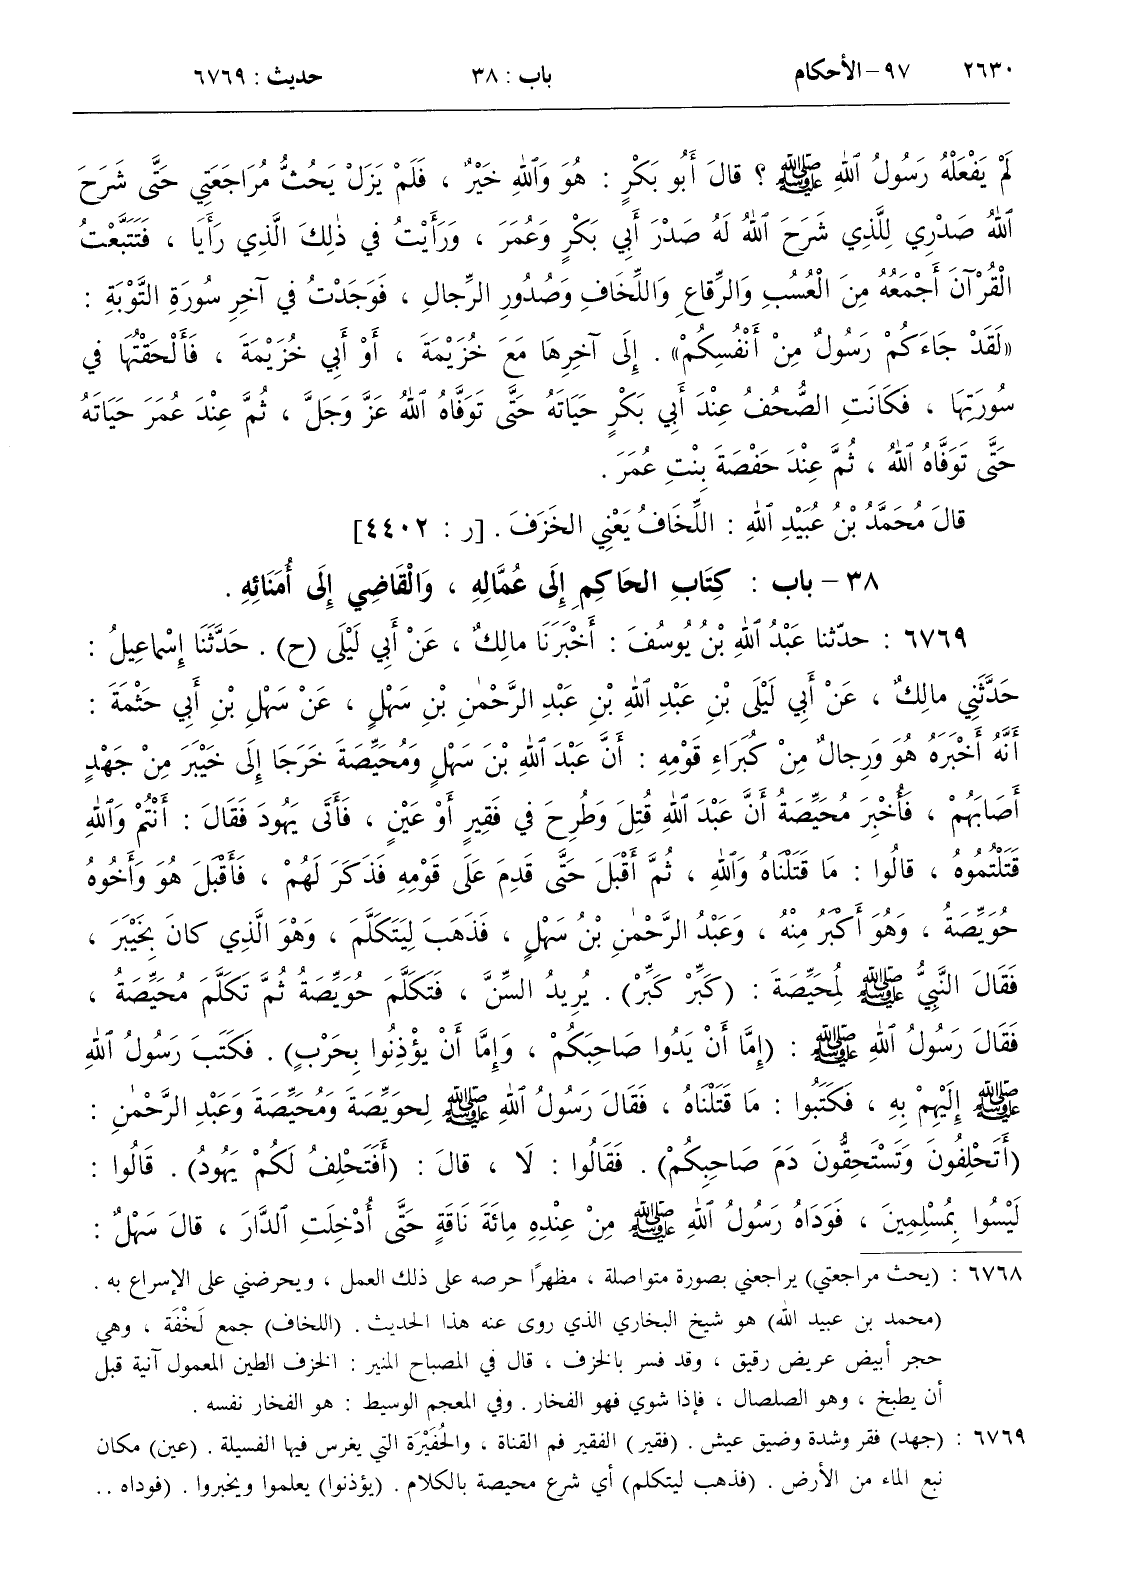 ٢٦٣٠ ٩٧-الأحكام باب : ٣٨ حديث : ٦٧٦٩
لَمْ يَفْعَلْهُ رَسُولُ ٱللهِ ﷺ ؟ قالَ أَبُو بَكْرٍ : هُوَ وَٱللهِ خَيْرٌ ، فَلَمْ يَزَلْ يَحُثُّ مُرَاجَعَتِي حَتَّى شَرَحَ
ٱللهُ صَدْرِي لِلَّذِي شَرَحَ ٱللهُ لَهُ صَدْرَ أَبِي بَكْرٍ وَعُمَرَ ، وَرَأَيْتُ في ذٰلِكَ الَّذِي رَأَيَا ، فَتَتَبَّعْتُ
الْقُرْآنَ أَجْمَعُهُ مِنَ الْعُسُبِ وَالرِّقاعِ وَاللِّخَافِ وَصُدُورِ الرِّجالِ ، فَوَجَدْتُ في آخِرِ سُورَةِ التَّوْبَةِ :
«لَقَدْ جاءَكُمْ رَسُولٌ مِنْ أَنْفُسِكُمْ» . إِلَى آخِرِهَا مَعَ خُزَيْمَةَ ، أَوْ أَبِي خُزَيْمَةَ ، فَأَلْحَقْتُهَا في
سُورَتِهَا ، فَكانَتِ الصُّحُفُ عِنْدَ أَبِي بَكْرٍ حَيَاتَهُ حَتَّى تَوَفَّاهُ ٱللهُ عَزَّ وَجَلَّ ، ثُمَّ عِنْدَ عُمَرَ حَيَاتَهُ
حَتَّى تَوَفَّاهُ ٱللهُ ، ثُمَّ عِنْدَ حَفْصَةَ بِنْتِ عُمَرَ .
قالَ مُحَمَّدُ بْنُ عُبَيْدِ ٱللهِ : اللِّخَافُ يَعْنِي الخَزَفَ . [ر : ٤٤٠٢]
٣٨ - باب : كِتَابِ الحَاكِمِ إِلَى عُمَّالِهِ ، وَالْقَاضِي إِلَى أُمَنَائِهِ .
٦٧٦٩ : حدّثنا عَبْدُ ٱللهِ بْنُ يُوسُفَ : أَخْبَرَنَا مالِكٌ ، عَنْ أَبِي لَيْلَى (ح) . حَدَّثَنَا إِسْماعِيلُ :
حَدَّثَنِي مالِكٌ ، عَنْ أَبِي لَيْلَى بْنِ عَبْدِ ٱللهِ بْنِ عَبْدِ الرَّحْمٰنِ بْنِ سَهْلٍ ، عَنْ سَهْلِ بْنِ أَبِي حَثْمَةَ :
أَنَّهُ أَخْبَرَهُ هُوَ وَرِجالٌ مِنْ كُبَرَاءِ قَوْمِهِ : أَنَّ عَبْدَ ٱللهِ بْنَ سَهْلٍ وَمُحَيِّصَةَ خَرَجَا إِلَى خَيْبَرَ مِنْ جَهْدٍ
أَصَابَهُمْ ، فَأُخْبِرَ مُحَيِّصَةُ أَنَّ عَبْدَ ٱللهِ قُتِلَ وَطُرِحَ في فَقِيرٍ أَوْ عَيْنٍ ، فَأَتَى يَهُودَ فَقَالَ : أَنْتُمْ وَٱللهِ
قَتَلْتُمُوهُ ، قالُوا : مَا قَتَلْنَاهُ وَٱللهِ ، ثُمَّ أَقْبَلَ حَتَّى قَدِمَ عَلَى قَوْمِهِ فَذَكَرَ لَهُمْ ، فَأَقْبَلَ هُوَ وَأَخُوهُ
حُوَيِّصَةُ ، وَهُوَ أَكْبَرُ مِنْهُ ، وَعَبْدُ الرَّحْمٰنِ بْنُ سَهْلٍ ، فَذَهَبَ لِيَتَكَلَّمَ ، وَهْوَ الَّذِي كانَ بِخَيْبَرَ ،
فَقَالَ النَّبِيُّ ﷺ لِمُحَيِّصَةَ : (كَبِّرْ كَبِّرْ) . يُرِيدُ السِّنَّ ، فَتَكَلَّمَ حُوَيِّصَةُ ثُمَّ تَكَلَّمَ مُحَيِّصَةُ ،
فَقَالَ رَسُولُ ٱللهِ ﷺ : (إِمَّا أَنْ يَدُوا صَاحِبَكُمْ ، وَإِمَّا أَنْ يُؤْذِنُوا بِحَرْبٍ) . فَكَتَبَ رَسُولُ ٱللهِ
ﷺ إِلَيْهِمْ بِهِ ، فَكَتَبُوا : مَا قَتَلْنَاهُ ، فَقَالَ رَسُولُ ٱللهِ ﷺ لِحوَيِّصَةَ وَمُحَيِّصَةَ وَعَبْدِ الرَّحْمٰنِ :
(أَتَحْلِفُونَ وَتَسْتَحِقُّونَ دَمَ صَاحِبِكُمْ) . فَقَالُوا : لَا ، قالَ : (أَفَتَحْلِفُ لَكُمْ يَهُودُ) . قَالُوا :
لَيْسُوا بِمُسْلِمِينَ ، فَوَدَاهُ رَسُولُ ٱللهِ ﷺ مِنْ عِنْدِهِ مِائَةَ نَاقَةٍ حَتَّى أُدْخِلَتِ ٱلدَّارَ ، قالَ سَهْلٌ :
٦٧٦٨ : (يحث مراجعتي) يراجعني بصورة متواصلة ، مظهرًا حرصه على ذلك العمل ، ويحرضني على الإسراع به .
(محمد بن عبيد الله) هو شيخ البخاري الذي روى عنه هذا الحديث . (اللخاف) جمع لَخْفَة ، وهي
حجر أبيض عريض رقيق ، وقد فسر بالخزف ، قال في المصباح المنير : الخزف الطين المعمول آنية قبل
أن يطبخ ، وهو الصلصال ، فإذا شوي فهو الفخار . وفي المعجم الوسيط : هو الفخار نفسه .
٦٧٦٩ : (جهد) فقر وشدة وضيق عيش . (فقير) الفقير فم القناة ، والحُفَيْرَة التي يغرس فيها الفسيلة . (عين) مكان
نبع الماء من الأرض . (فذهب ليتكلم) أي شرع محيصة بالكلام . (يؤذنوا) يعلموا ويخبروا . (فوداه ..